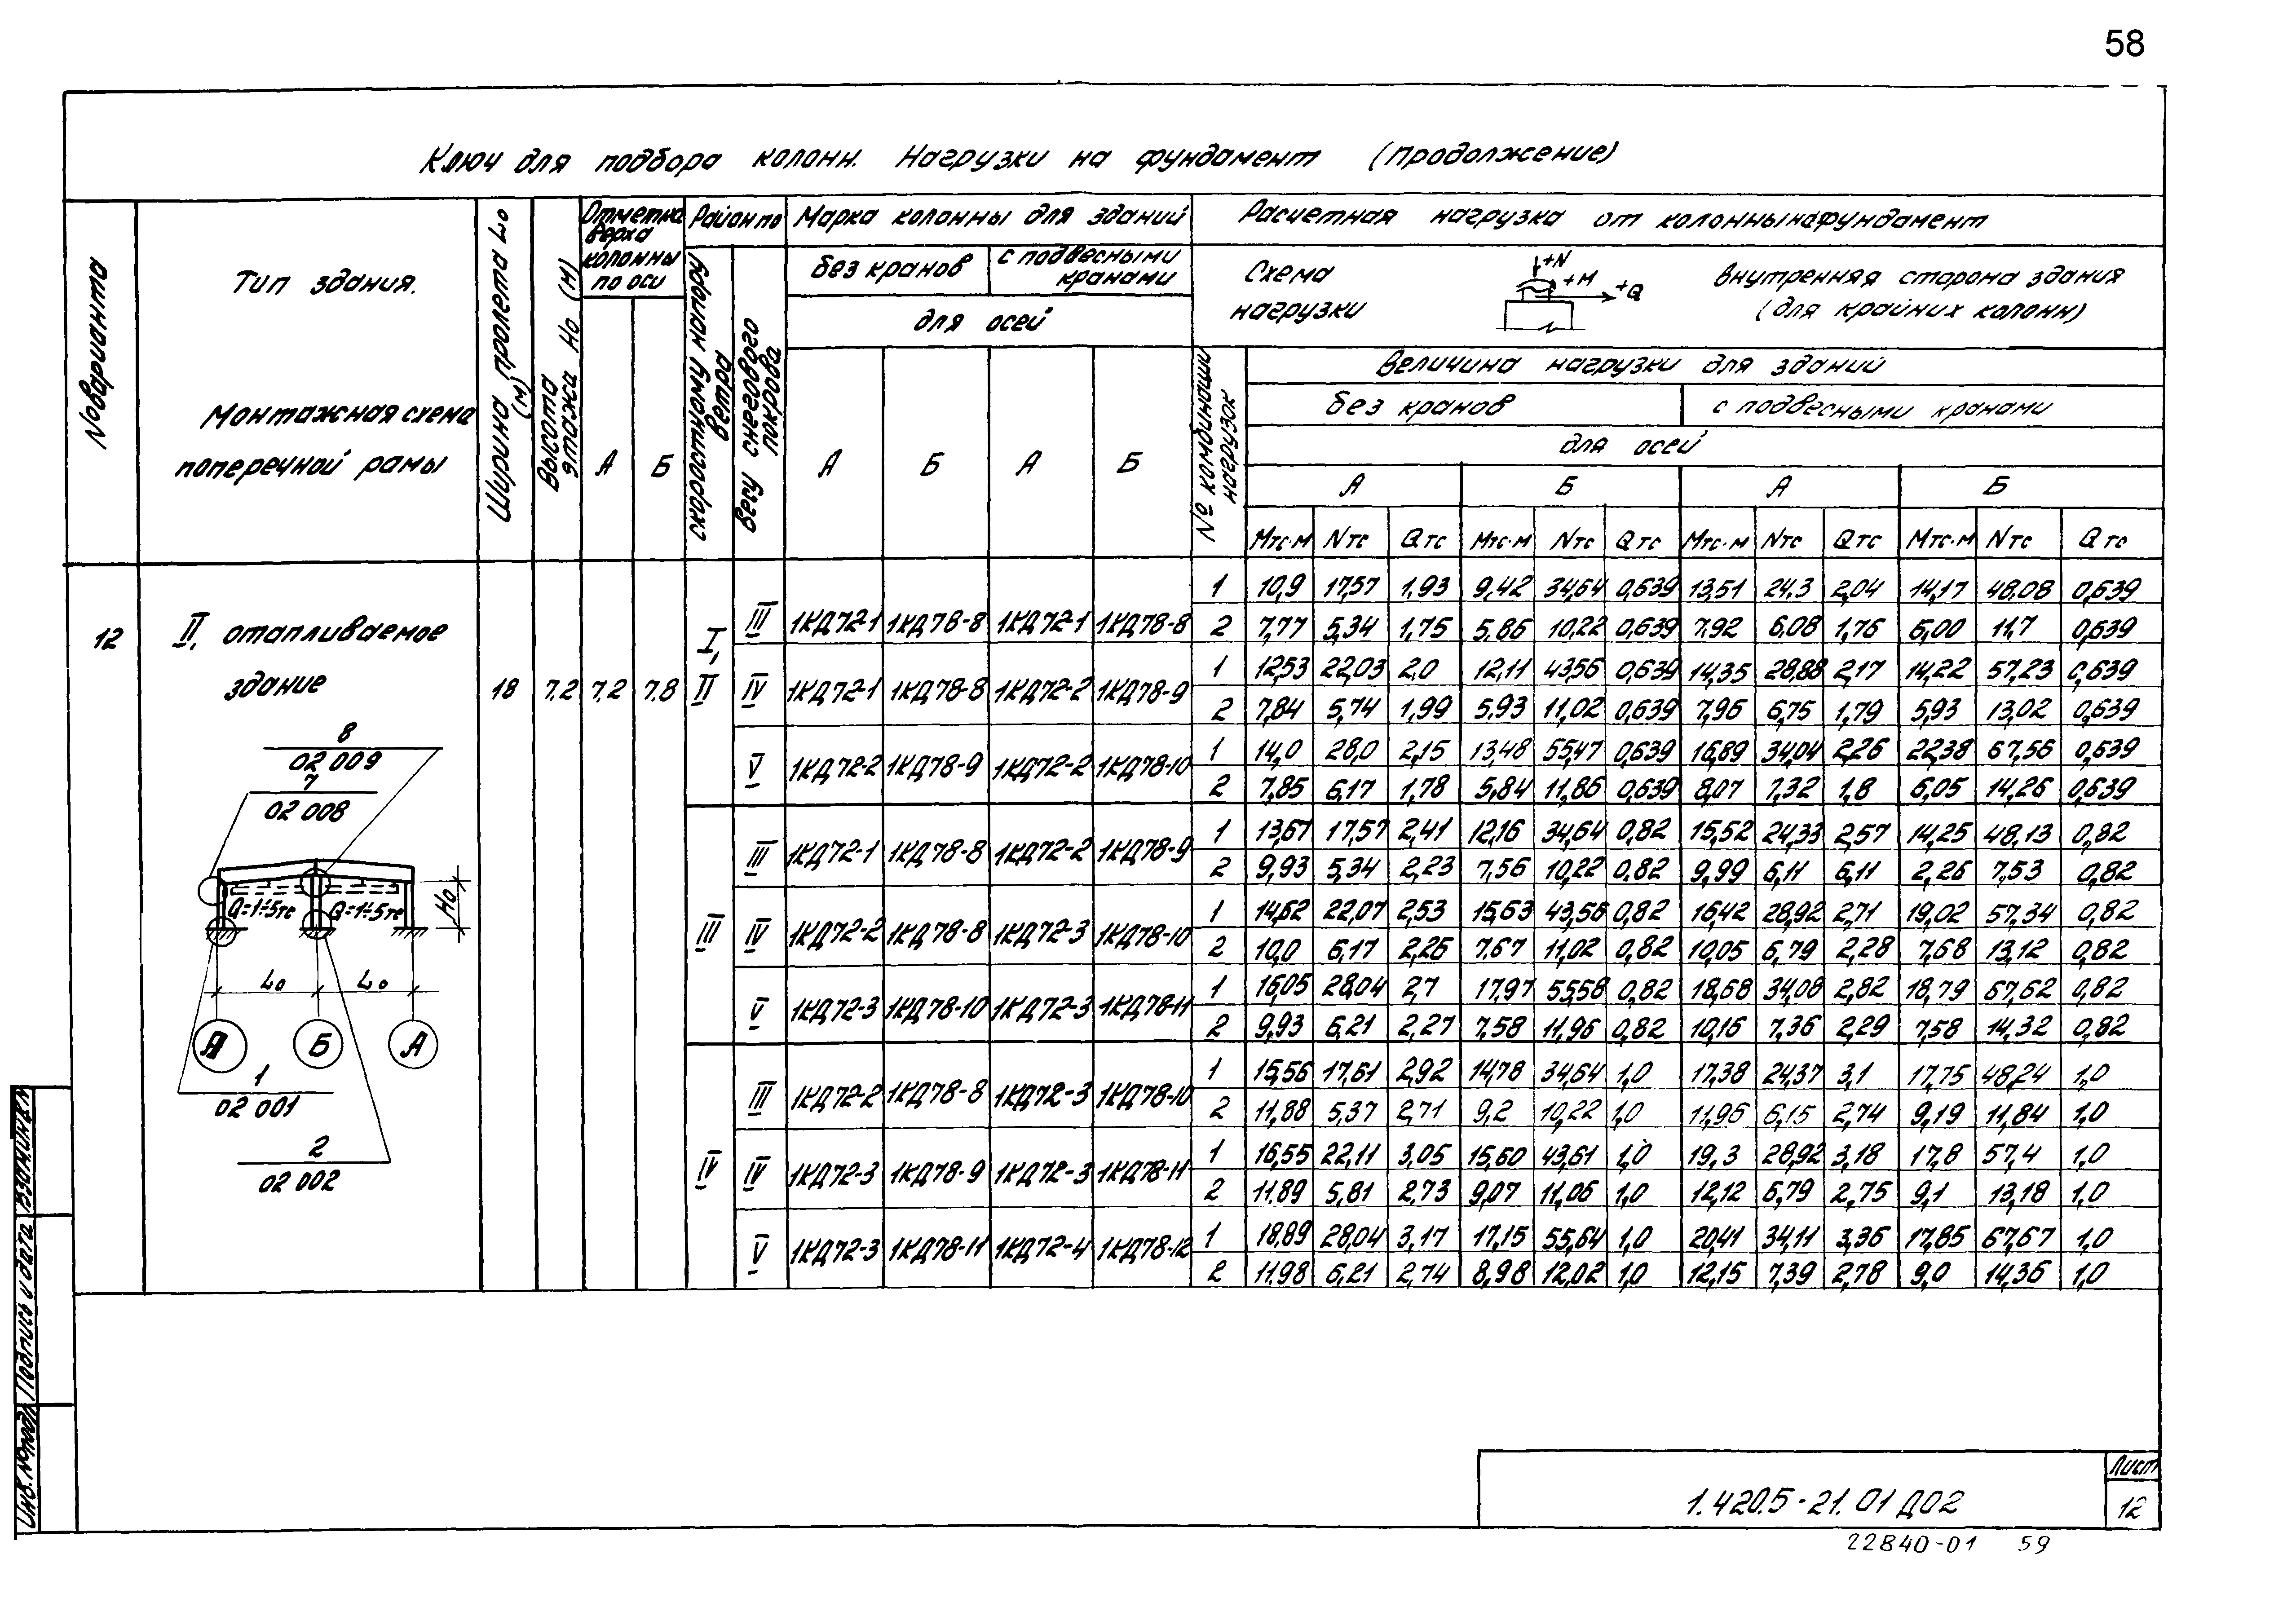 58
Ключ для подбора колонн. Нагрузки на фундамент (продолжение)
№ варианта
Тип здания.
Монтажная схема
поперечной рамы
Ширина пролета Lо (м)
Высота этажа Но (м)
Отметка верха колонны по оси
А Б
Район по
скоростному напору ветра
весу снегового покрова
Марка колонны для зданий
без кранов с подвесными кранами
для осей
А Б А Б
Расчетная нагрузка от колонны на фундамент
Схема нагрузки
+N +M +Q
внутренняя сторона здания
(для крайних колонн)
№ комбинации нагрузок
Величина нагрузки для зданий
без кранов с подвесными кранами
для осей
А Б А Б
Мтс·м Nтс Qтс Мтс·м Nтс Qтс Мтс·м Nтс Qтс Мтс·м Nтс Qтс
12 II, отапливаемое здание 18 7.2 7.2 7.8
I, II
III 1КД72-1 1КД78-8 1КД72-1 1КД78-8
1 10,9 17,57 1,93 9,42 34,64 0,639 13,51 24,3 2,04 14,17 48,08 0,639
2 7,77 5,34 1,75 5,86 10,22 0,639 7,92 6,08 1,76 6,00 11,7 0,639
IV 1КД72-1 1КД78-8 1КД72-2 1КД78-9
1 12,53 22,03 2,0 12,11 43,56 0,639 14,35 28,88 2,17 14,22 57,23 0,639
2 7,84 5,74 1,99 5,93 11,02 0,639 7,96 6,75 1,79 5,93 13,02 0,639
V 1КД72-2 1КД78-9 1КД72-2 1КД78-10
1 14,0 28,0 2,15 13,48 55,47 0,639 16,89 34,04 2,26 22,38 67,56 0,639
2 7,85 6,17 1,78 5,84 11,86 0,639 8,07 7,32 1,8 6,05 14,26 0,639
III
III 1КД72-1 1КД78-8 1КД72-2 1КД78-9
1 13,67 17,57 2,41 12,16 34,64 0,82 15,52 24,33 2,57 14,25 48,13 0,82
2 9,93 5,34 2,23 7,56 10,22 0,82 9,99 6,11 6,11 2,26 7,53 0,82
IV 1КД72-2 1КД78-8 1КД72-3 1КД78-10
1 14,62 22,07 2,53 15,63 43,56 0,82 16,42 28,92 2,71 19,02 57,34 0,82
2 10,0 6,17 2,26 7,67 11,02 0,82 10,05 6,79 2,28 7,68 13,12 0,82
V 1КД72-3 1КД78-10 1КД72-3 1КД78-11
1 16,05 28,04 2,7 17,97 55,58 0,82 18,68 34,08 2,82 18,79 67,62 0,82
2 9,93 6,21 2,27 7,58 11,96 0,82 10,16 7,36 2,29 7,58 14,32 0,82
IV
III 1КД72-2 1КД78-8 1КД72-3 1КД78-10
1 15,56 17,61 2,92 14,78 34,64 1,0 17,38 24,37 3,1 17,75 48,24 1,0
2 11,88 5,37 2,71 9,2 10,22 1,0 11,96 6,15 2,74 9,19 11,84 1,0
IV 1КД72-3 1КД78-9 1КД72-3 1КД78-11
1 16,55 22,11 3,05 15,60 43,61 1,0 19,3 28,92 3,18 17,8 57,4 1,0
2 11,89 5,81 2,73 9,07 11,06 1,0 12,12 6,79 2,75 9,1 13,18 1,0
V 1КД72-3 1КД78-11 1КД72-4 1КД78-12
1 18,89 28,04 3,17 17,15 55,64 1,0 20,41 34,11 3,36 17,85 67,67 1,0
2 11,98 6,21 2,74 8,98 12,02 1,0 12,15 7,39 2,78 9,0 14,36 1,0
8
02 009
7
02 008
Q=1÷5тс Q=1÷5тс
Но
Lо Lо
А Б А
1
02 001
2
02 002
Инв. № подл. Подпись и дата Взам.инв.№
1.420.5-21.01 Д02
Лист
12
22840-01 59